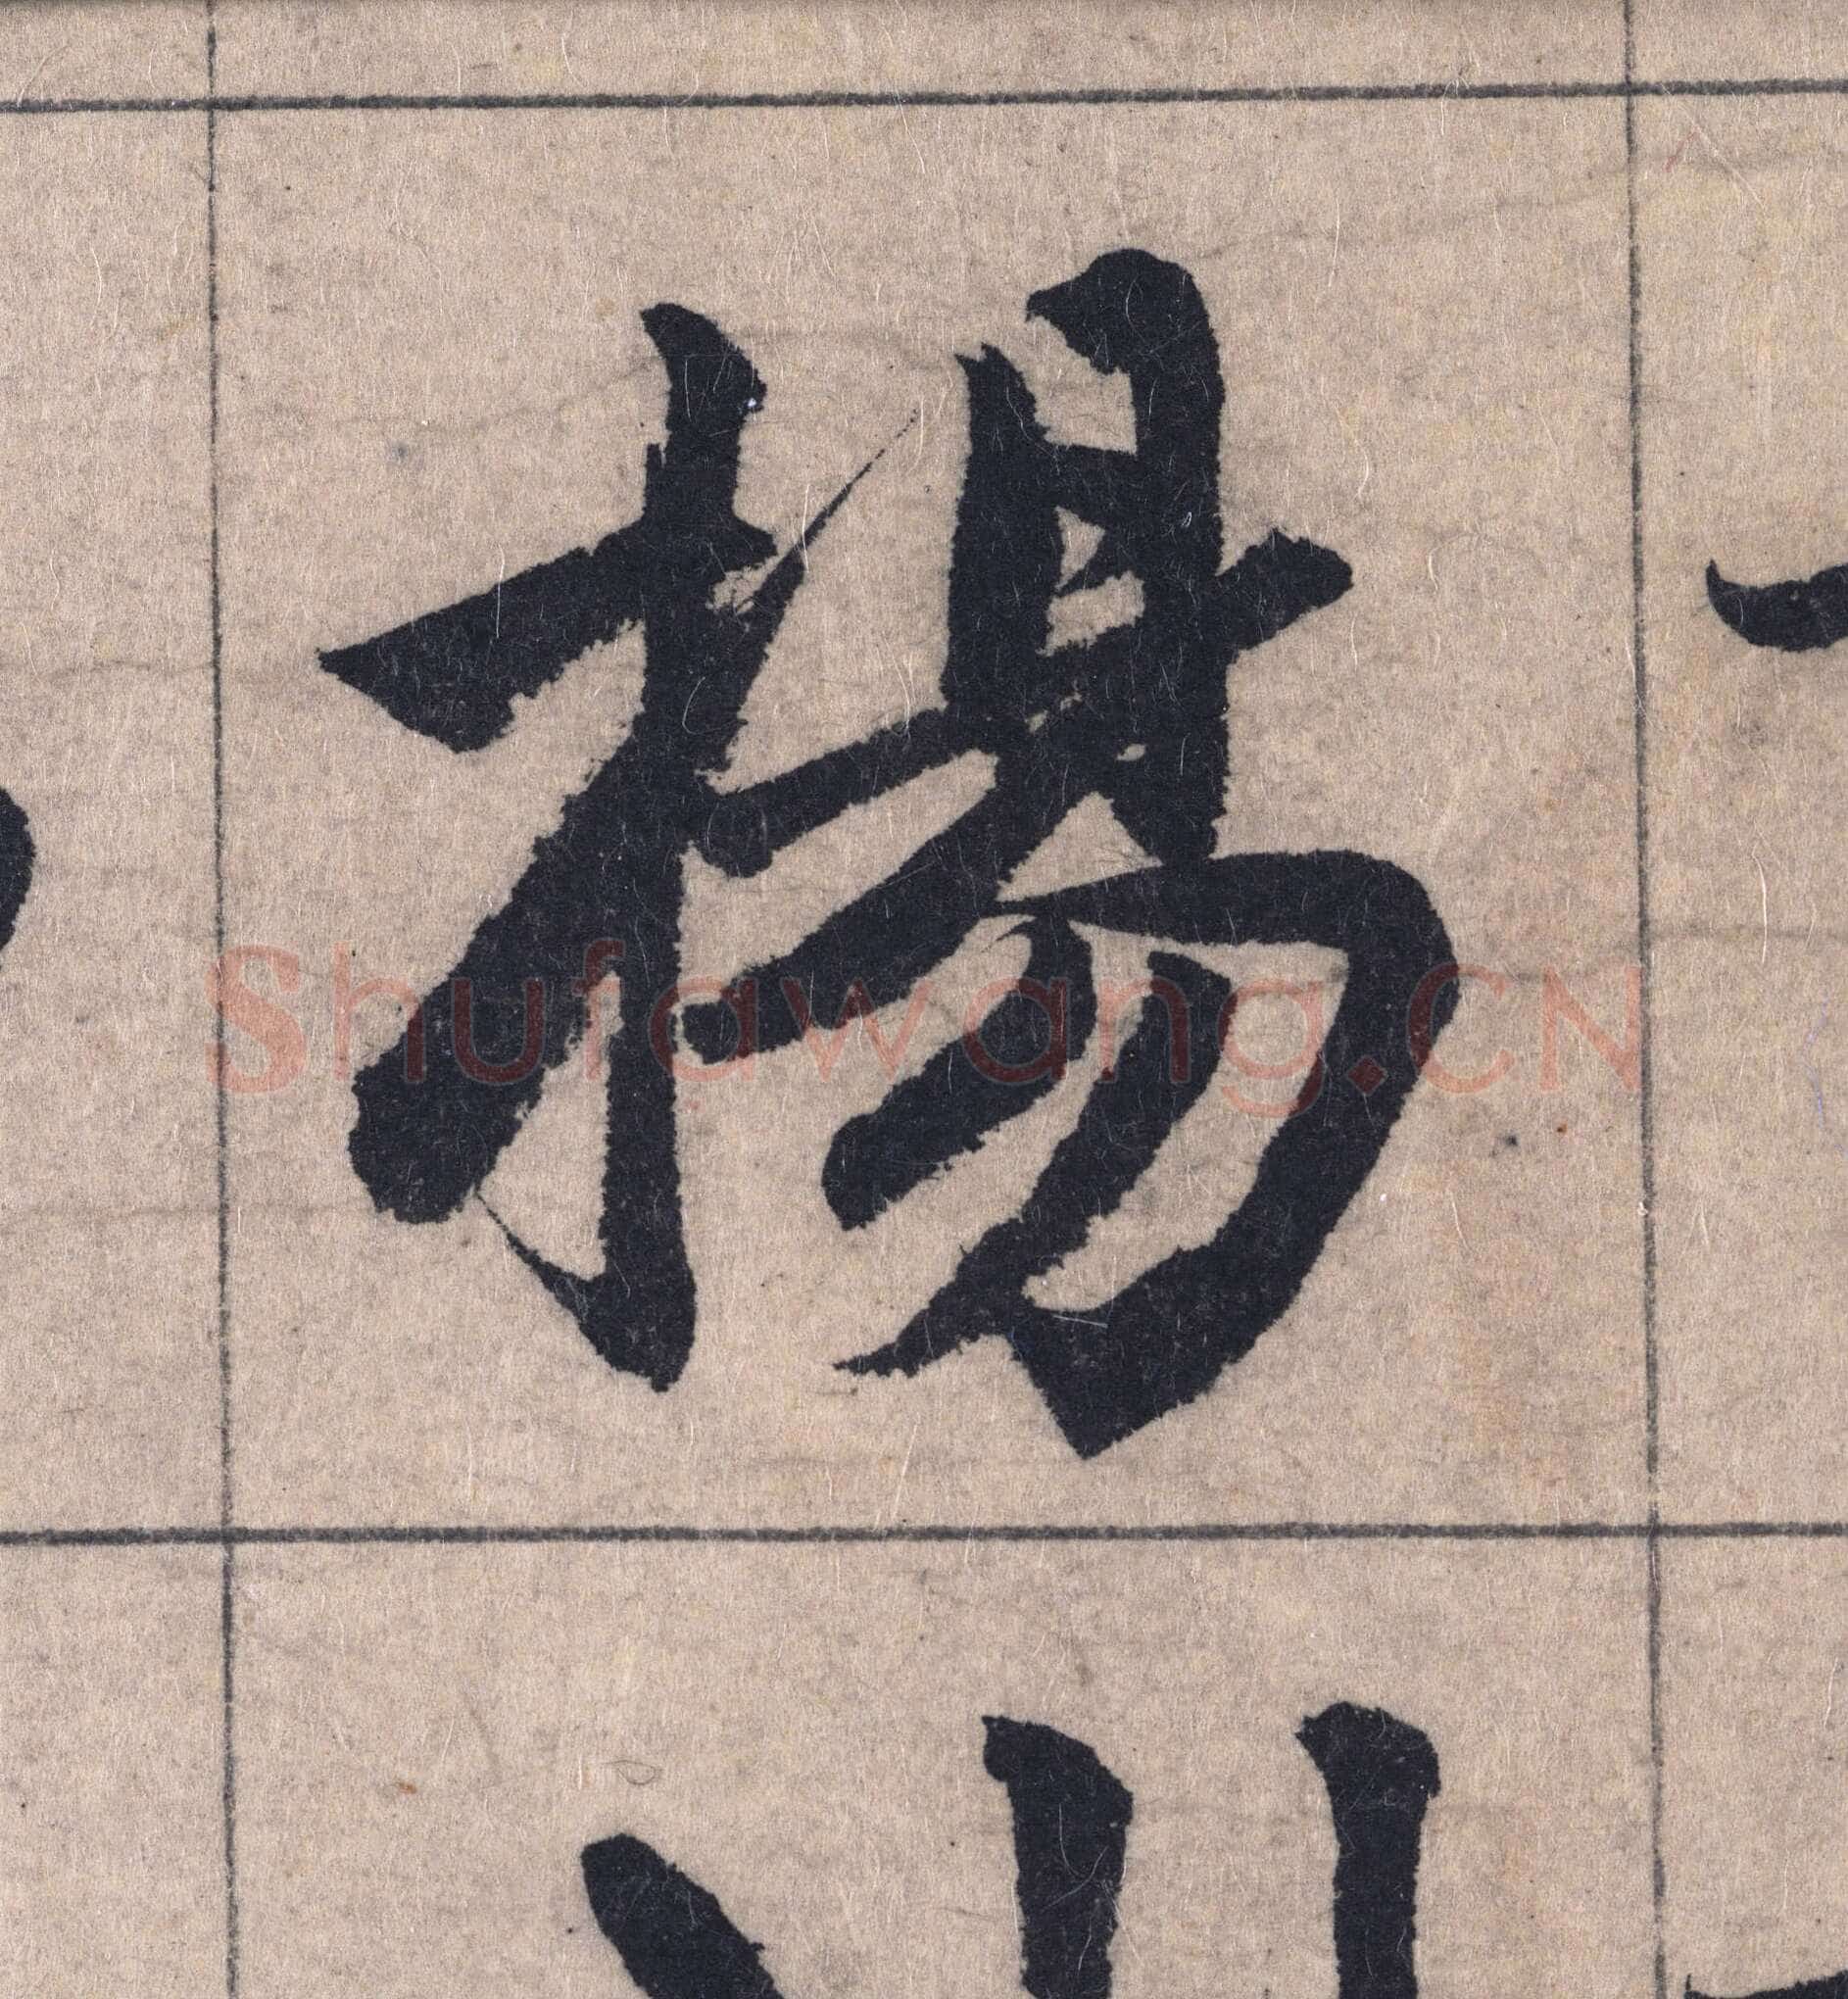 揚
Shufawang.CN